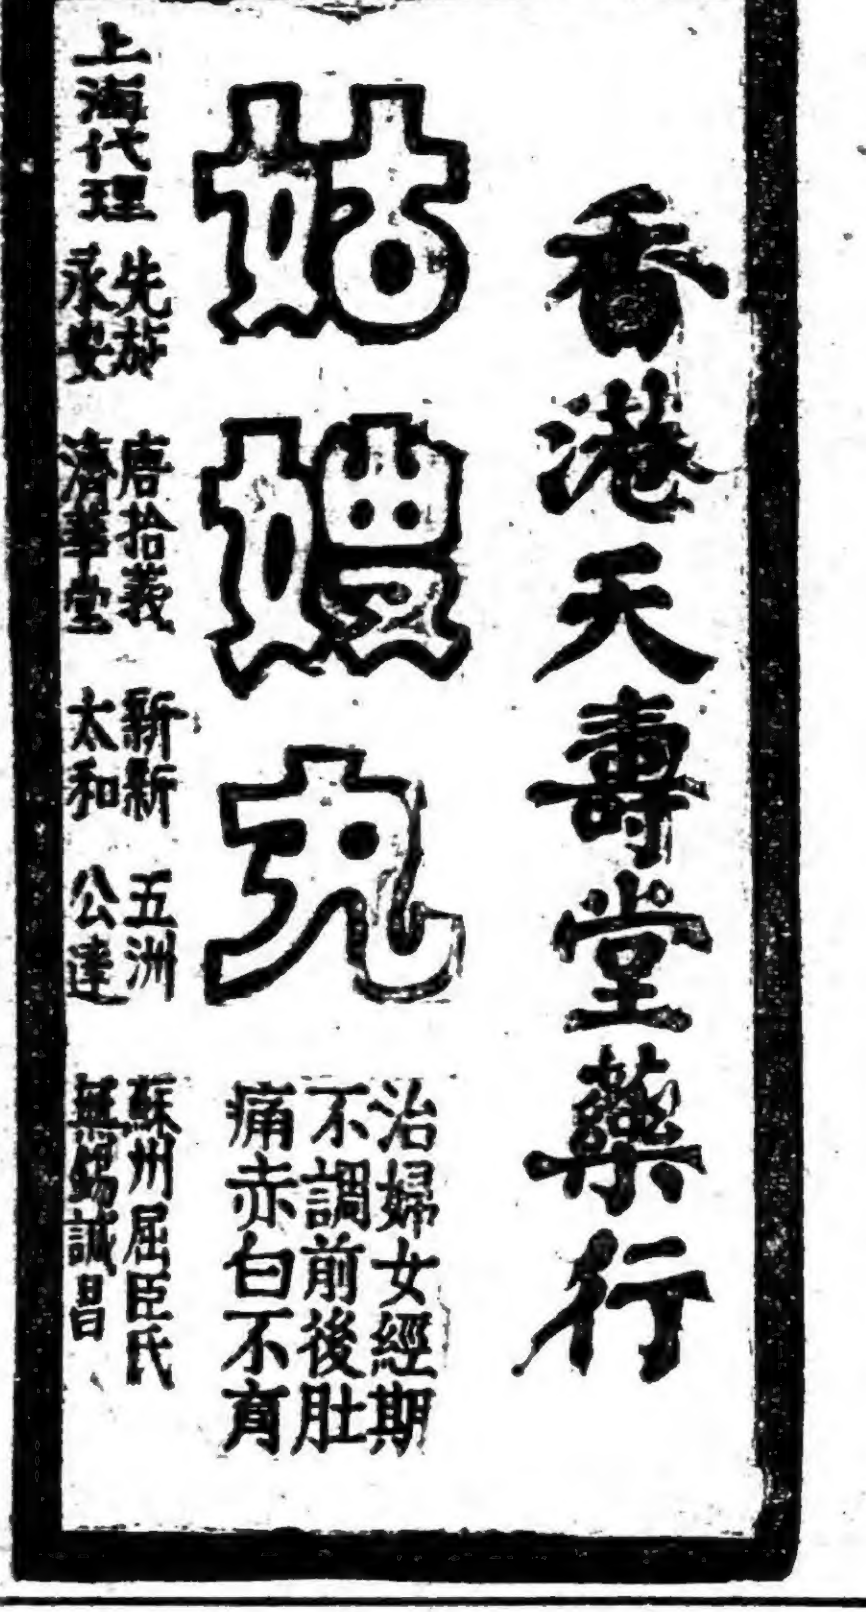 香港天壽堂藥行
姑嫂丸
治婦女經期
不調前後肚
痛赤白不育
上海代理
先施
永安
唐拾義
濟華堂
新新
太和
五洲
公達
蘇州屈臣氏
無錫誠昌